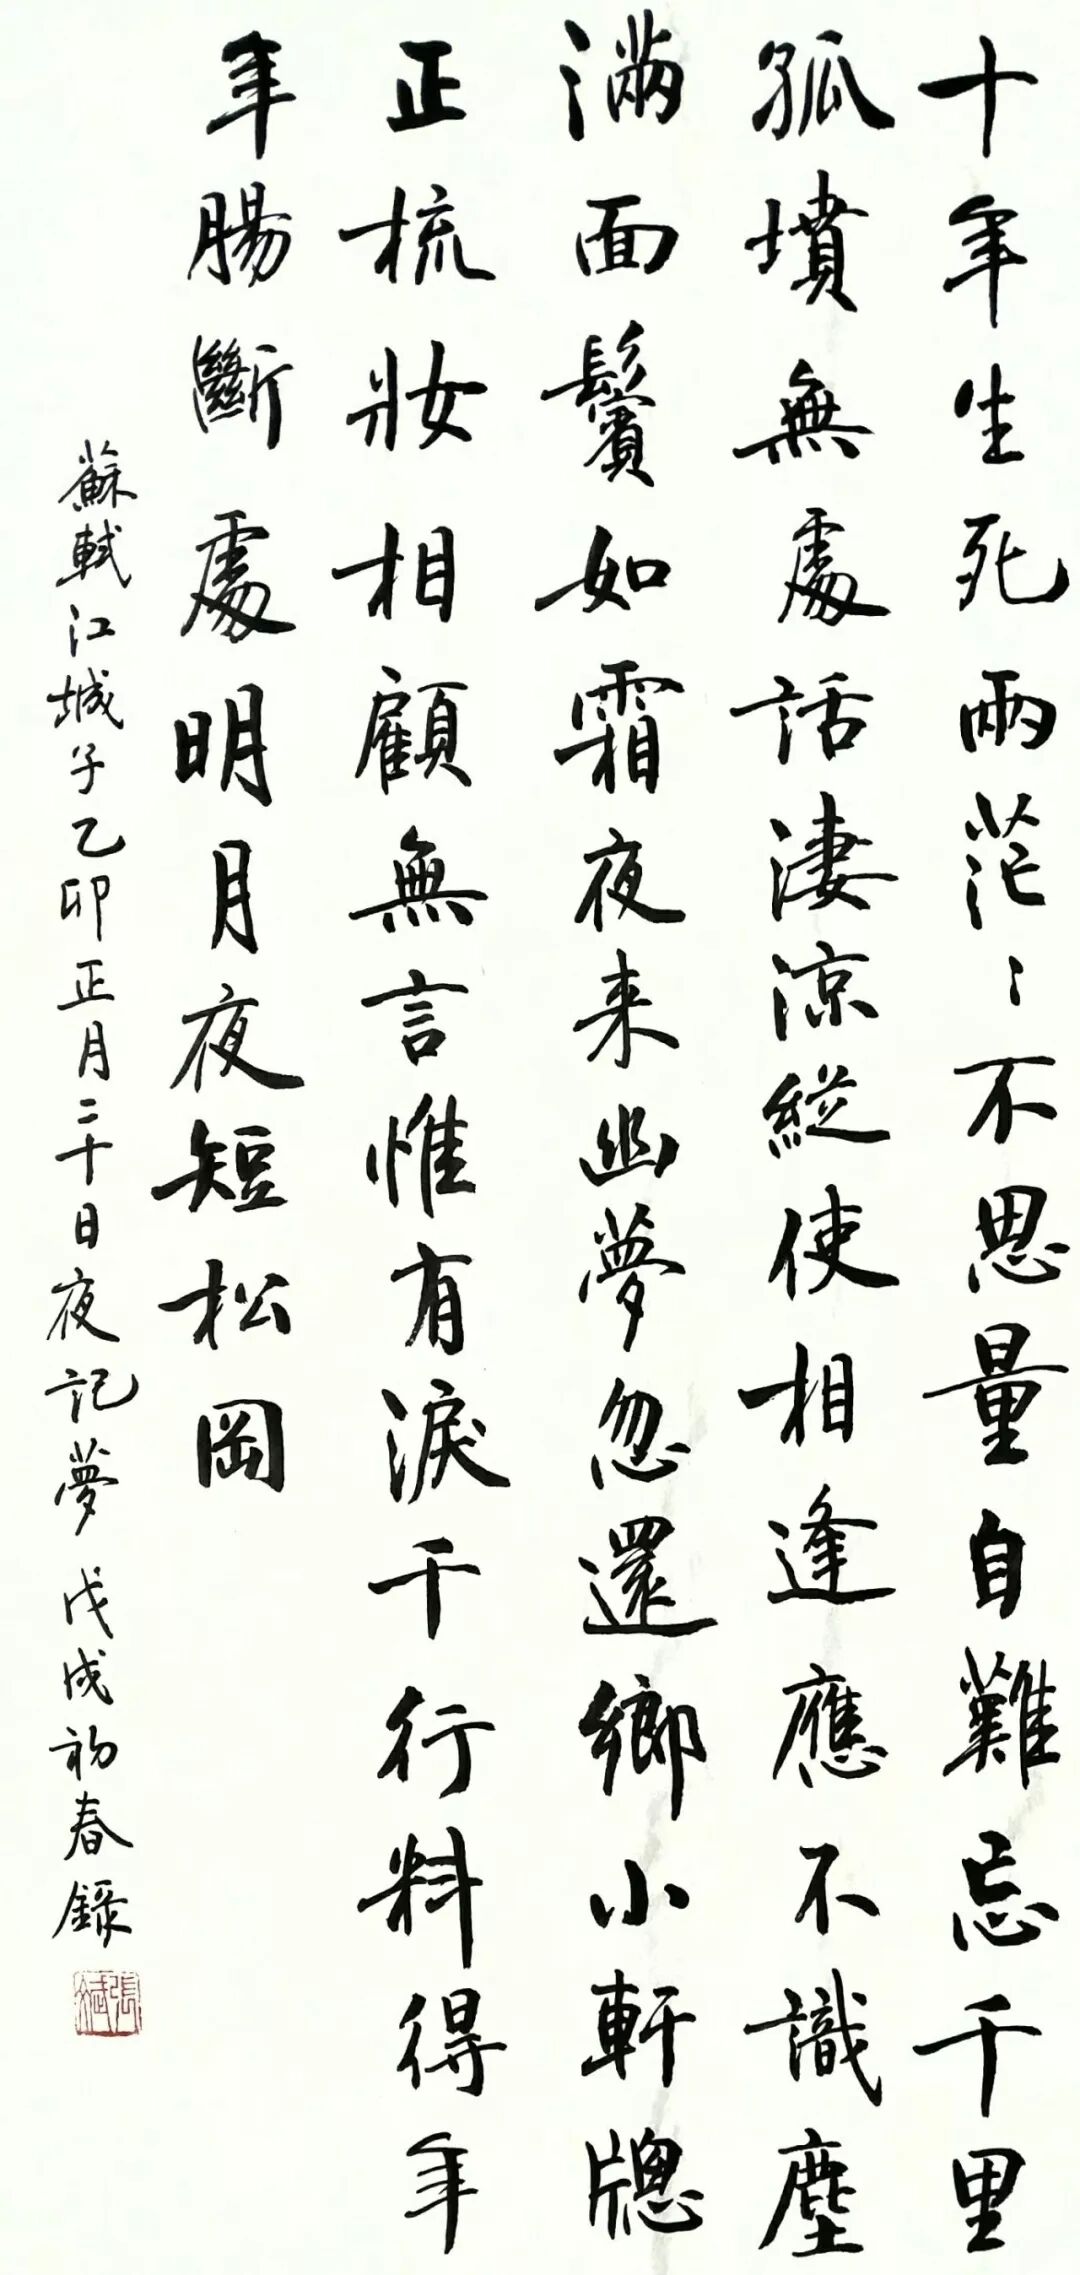 十年生死兩茫〻不思量自難忘千里
孤墳無處話淒涼縱使相逢應不識塵
滿面鬢如霜夜来幽夢忽還鄉小軒牕
正梳妝相顧無言惟有淚千行料得年
年腸斷處明月夜短松岡
蘇軾江城子乙卯正月二十日夜記夢 戊戌初春錄
張斌